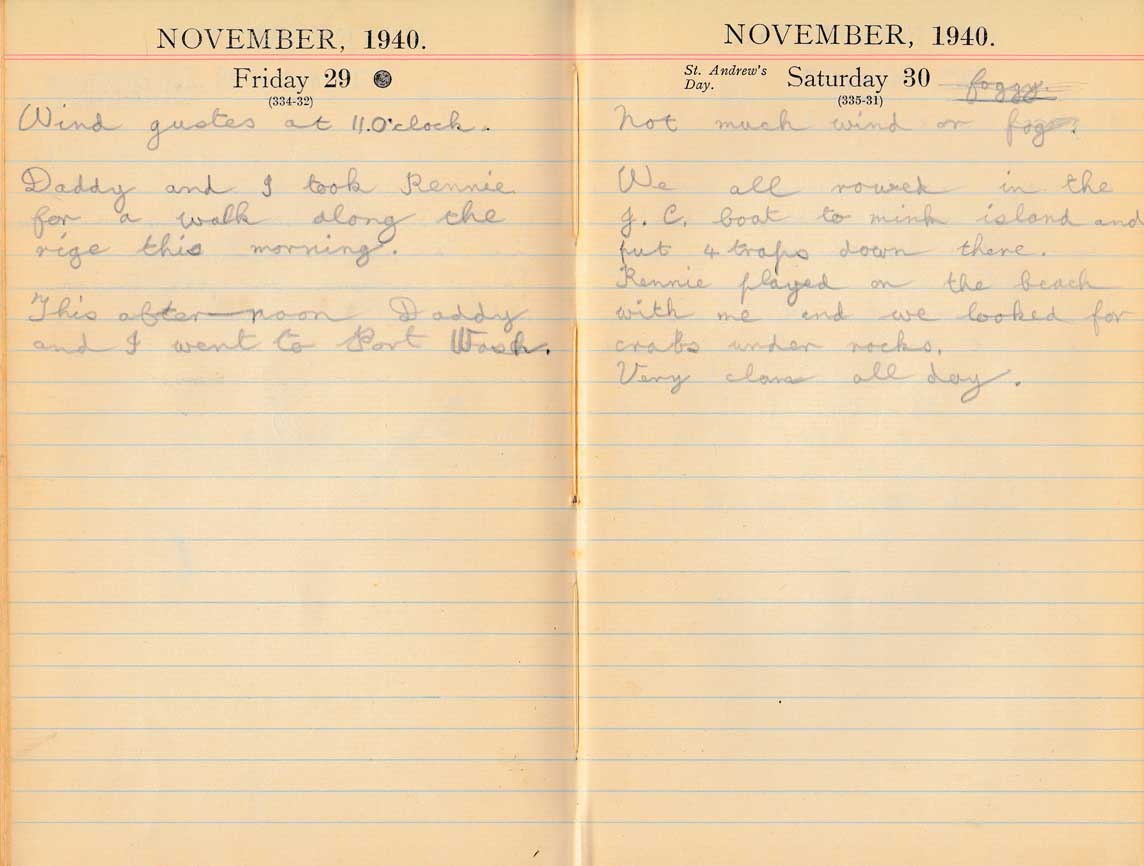 NOVEMBER, 1940.
Friday 29
(334-32)
Wind gustes at 11.O'clock.
Daddy and I took Rennie
for a walk along the
rige this morning.
This after-noon Daddy
and I went to Port Wash.
NOVEMBER, 1940.
St. Andrew's
Day.
Saturday 30
foggy.
(335-31)
Not much wind or fog.
We all rowed in the
J. C. boat to mink island and
put 4 traps down there.
Rennie played on the beach
with me and we looked for
crabs under rocks.
Very all day.